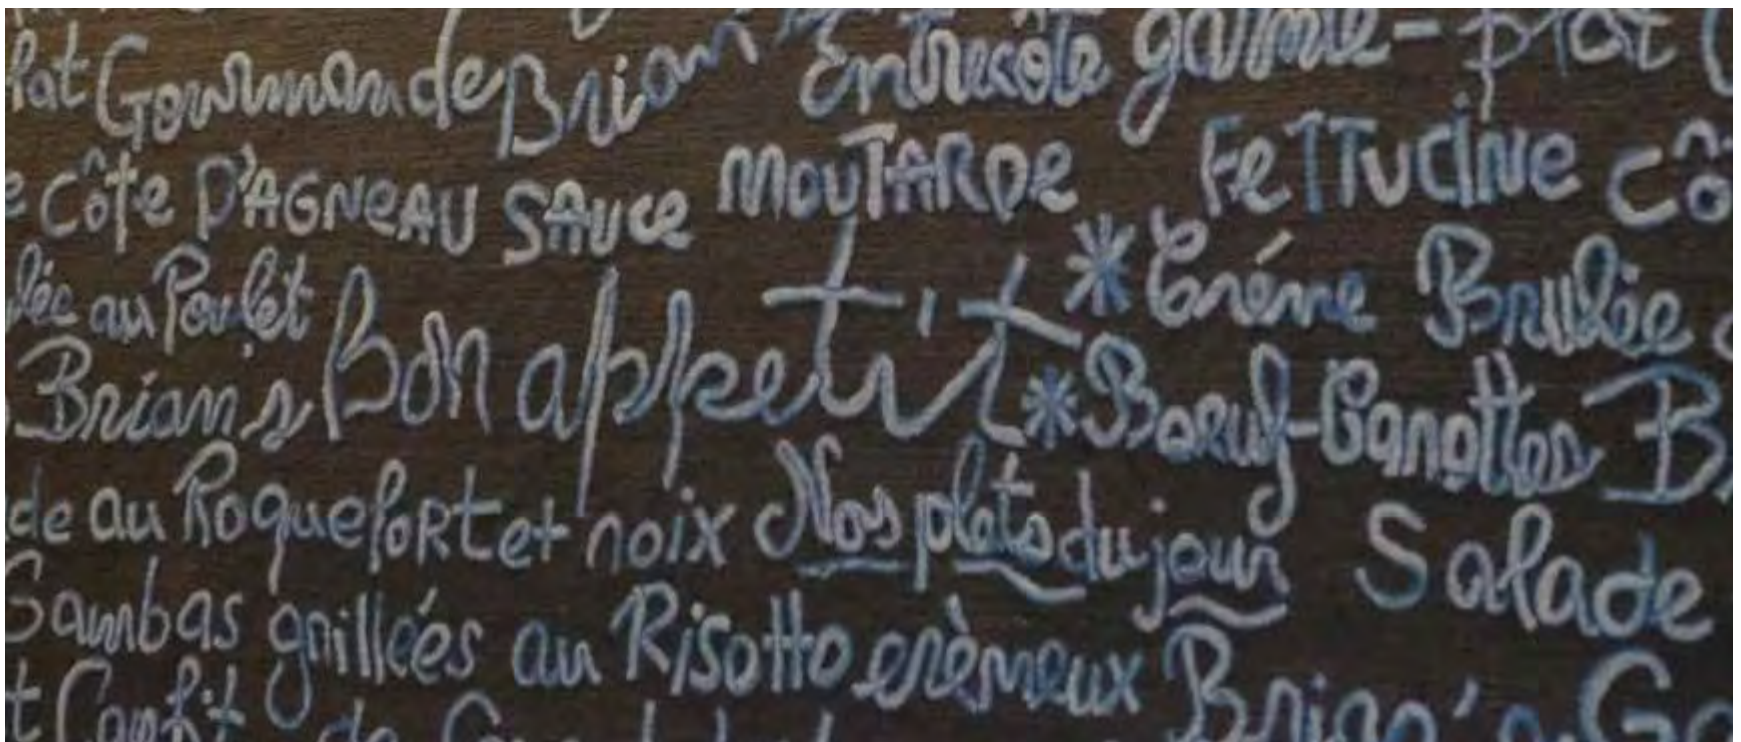 Gourmande Brian Entrecôte garnie - plat
Côte D'AGNEAU SAUCE MOUTARDE FETTUCINE Cô
au Poulet Bon appetit * Créme Brulée
Brian's * Boeuf-Carottes B
de au Roquefort et noix Nos plats du jour Salade
Gambas grillées au Risotto crèmeux Brian's Go
Confit de